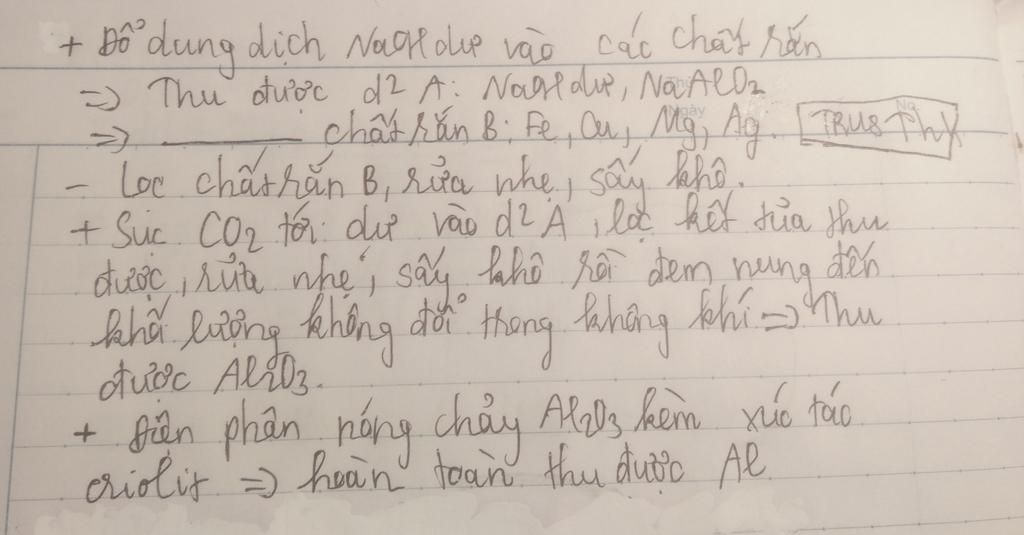 + Đổ dung dịch NaOH dư vào các chất rắn
=> Thu được d² A: NaOH dư, NaAlO₂
Ngày
=> ______ chất rắn B: Fe, Cu, Mg, Ag. TRUS Thy
- Lọc chất rắn B, rửa nhẹ, sấy khô.
+ Sục CO₂ tới dư vào d² A, lọc kết tủa thu
được, rửa nhẹ, sấy khô rồi đem nung đến
khối lượng không đổi trong không khí => Thu
được Al₂O₃.
+ Điện phân nóng chảy Al₂O₃ kèm xúc tác
criolit => hoàn toàn thu được Al